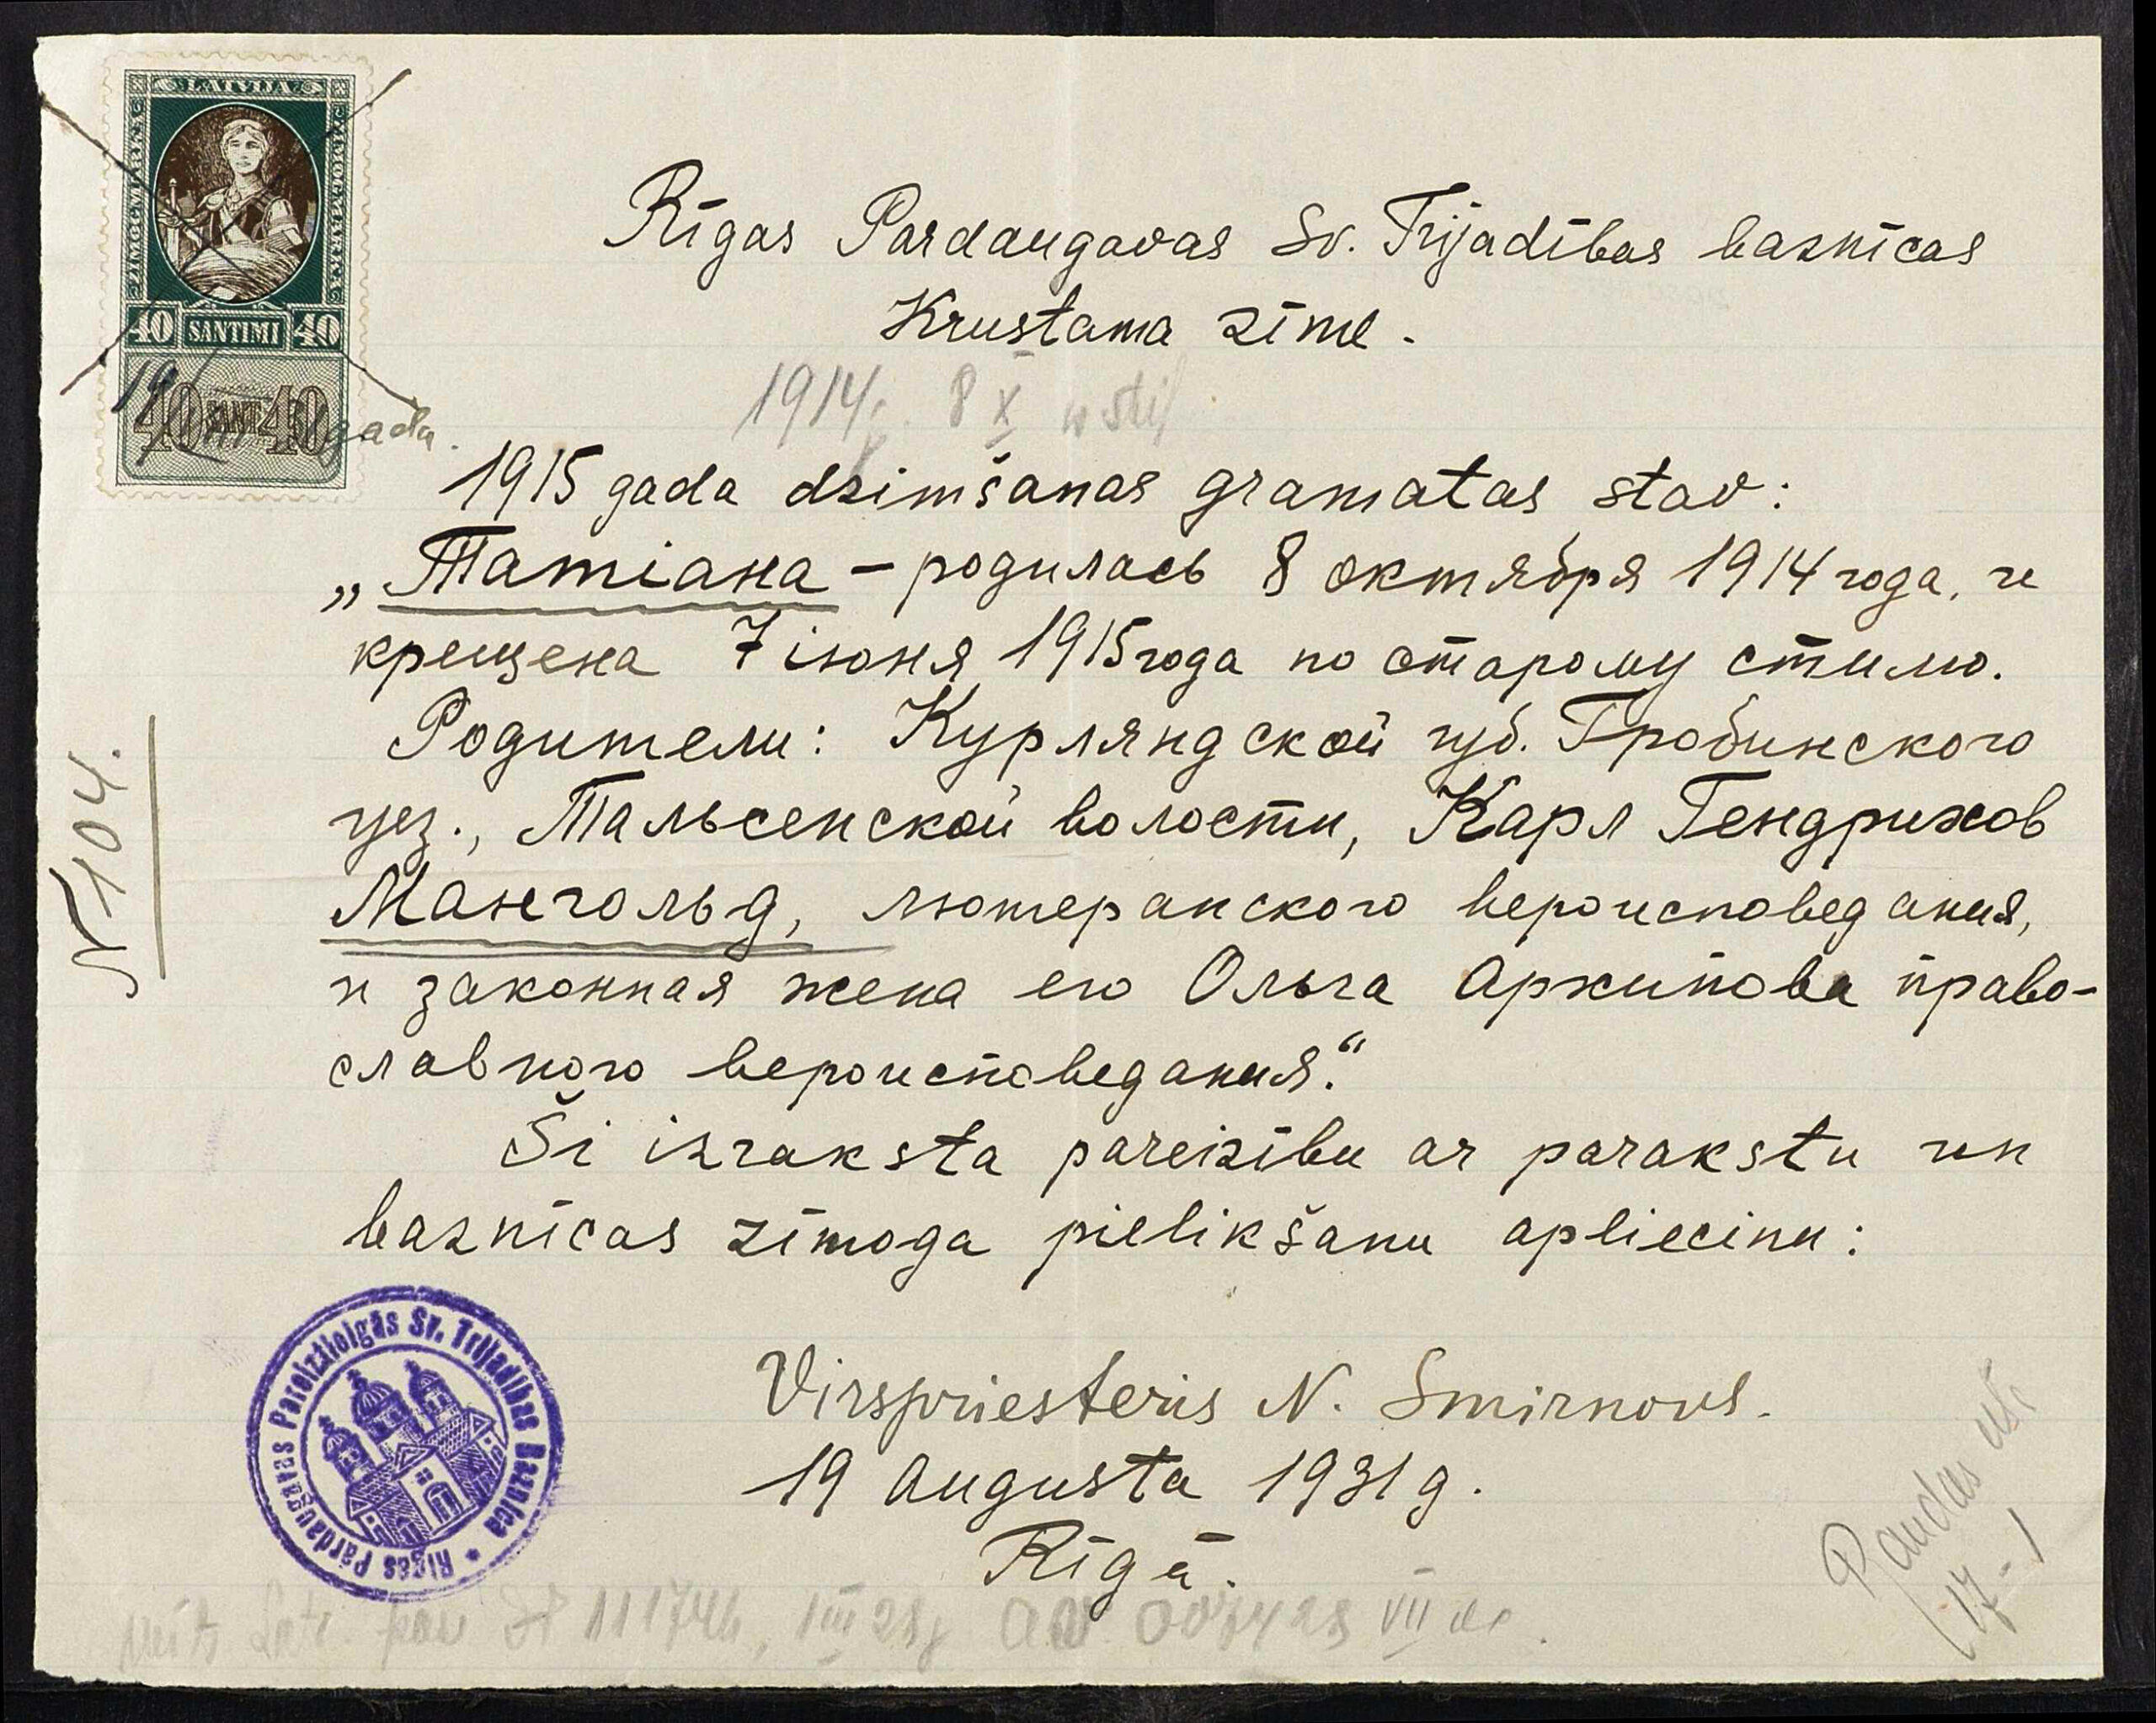 LATVIJA
ZIMOGMARKA
ZIMOGMARKA
40 SANTIMI 40
40 SANT. 40
gada.
Rīgas Pardaugavas Sv. Trijadības baznīcas
Krustama zīme.
1914 8 X
1915 gada dzimšanas gramatas stav:
„Татіана – родилась 8 октября 1914 года, и
крещена 7 іюня 1915 года по старому стилю.
Родители: Курляндской губ. Гробинского
уез., Тальсенской волости, Карл Гендрихов
Мангольд, лютеранского вероисповедания,
и законная жена его Ольга Архипова право-
славного вероисповедания.“
Ši izraksta pareizību ar parakstu un
baznīcas zīmoga pielikšanu apliecinu:
Virspriesteris N. Smirnovs.
19 Augusta 1931 g.
Rīgā.
N 104.
Rīgas Pārdaugavas Pareizticīgās Sv. Trijadības Baznīca
17-1